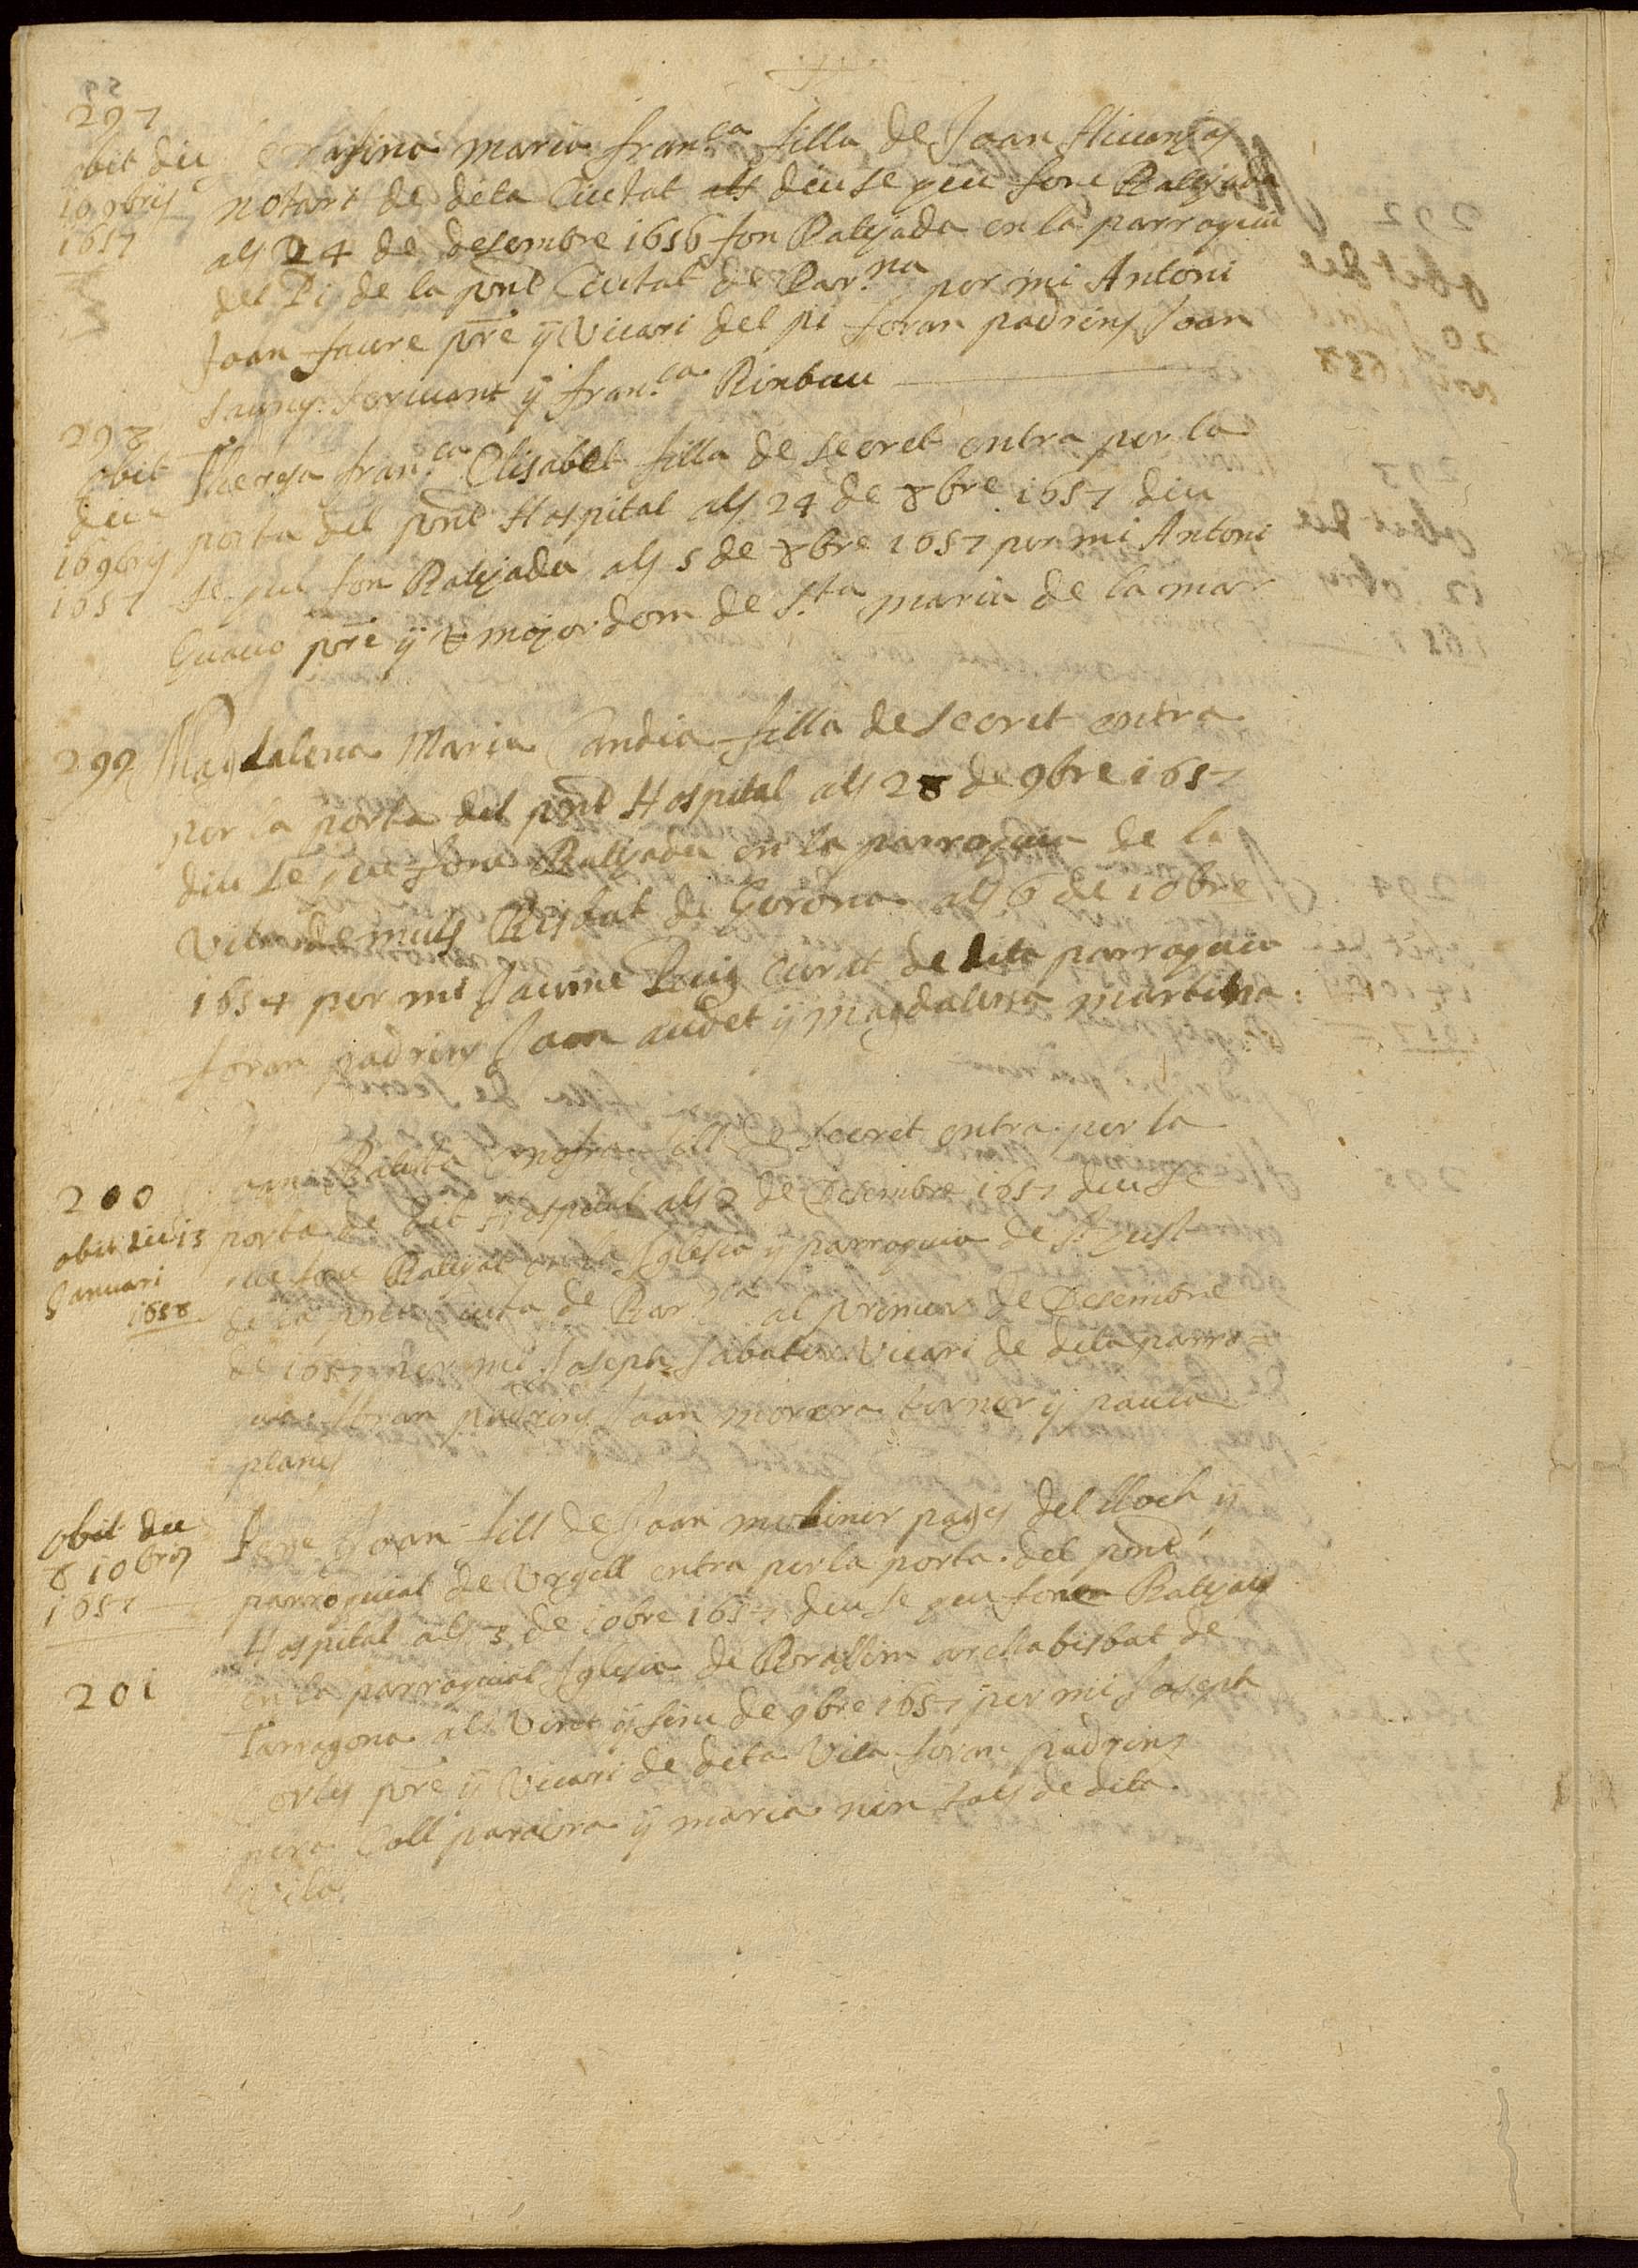 297
obit die
10 9bris
1657
Catarina maria fran.ca filla de Joan
notari de dita Ciutat als diu se que fonc Batejada
als 24 de desembre 1656 fon Batejada en la parroquia
del Pi de la pnt Ciutat de Bar.na per mi Antoni
Joan faure pre ÿ Vicari del pi foran padrins Joan
scriuent ÿ fran.ca Rinbau
298
obit
die
16 9bris
1657
Theresa fran.ca Elisabet filla de secret entra per la
porta del pnt Hospital als 24 de 8bre 1657 diu
se que fon Batejada als 5 de 8bre 1657 per mi Antoni
pre ÿ V mojordom de S.ta maria de la mar
299
Magdalena Maria Candia filla de secret entra
per la porta del pnt Hospital als 28 de 9bre 1657
diu se que fonc Batejada en la parroquia de la
Vila de muls Bisbat de Gerona als 6 de 10bre
1654 per mi Jaume Puig Curat de dita parroquia
foran padrins Joan audet ÿ magdalena martina
200
obit die 13
Januari
1658
Joan Batista Onofre fill de secret entra per la
porta de dit Hospital als 2 de Desembre 1657 diu se
que fonc Batejat en la Iglesia ÿ parroquia de St Just
de la pnt Ciuta de Bar.na al primer de Desembre
de 1657 per mi Joseph Sabater Vicari de dita parro=
quia foran padrins Joan morera torner ÿ paula
planes
obit die
8 10bris
1657
201
Pere Joan fill de Joan moliner pages del lloch ÿ
parroquial de Vrgell entra per la porta del pnt
Hospital als 3 de 10bre 1657 diu se que fonen Batejats
en la parroquial Iglesia de archabisbat de
Tarragona als Vint ÿ sinc de 9bre 1657 per mi Joseph
Cortes pre ÿ Vicari de dita Vila foran padrins
pera Coll paraira ÿ maria nin tots de dita
Vila